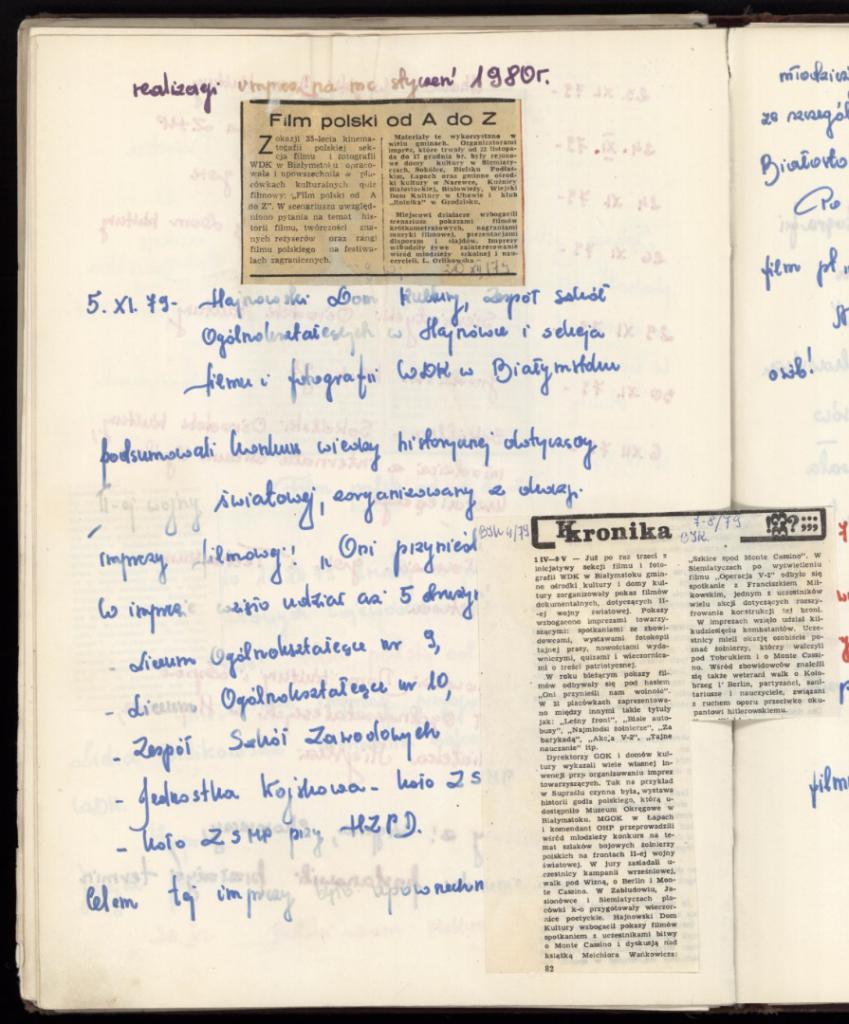 realizacji imprez na mc styczeń 1980r.
Film polski od A do Z
Z okazji 35-lecia kinema-
tografii polskiej sek-
cja filmu i fotografii
WDK w Białymstoku opraco-
wała i upowszechniła w pla-
cówkach kulturalnych quiz
filmowy: „Film polski od A
do Z”. W scenariuszu uwzględ-
niono pytania na temat his-
torii filmu, twórczości zna-
nych reżyserów oraz rangi
filmu polskiego na festiwa-
lach zagranicznych.
Materiały te wykorzystane w
wielu gminach. Organizatorami
imprez, które trwały od 22 listopa-
da do 17 grudnia br. były rejono-
we domy kultury w Siemiaty-
czach, Sokółce, Bielsku Podlas-
kim, Łapach oraz gminne ośrod-
ki kultury w Narewce, Kuźnicy
Białostockiej, Białowieży, Wiejski
Dom Kultury w Uhowie i klub
„Rolnika” w Grodzisku.
Miejscowi działacze wzbogacili
scenariusz pokazami filmów
krótkometrażowych, nagraniami
muzyki filmowej, prezentacjami
diaporam i slajdów. Imprezy
wzbudziły żywe zainteresowanie
wśród młodzieży szkolnej i nau-
czycieli. L. Orlikowska
20 XII/79
5. XI. 79 - Hajnowski Dom Kultury, Zespół szkół
Ogólnokształcących w Hajnówce i sekcja
filmu i fotografii WDK w Białymstoku
podsumowali konkurs wiedzy historycznej dotyczący
II-ej wojny światowej, zorganizowany z okazji
imprezy filmowej! „Oni przynieśl
W imprezie wzięło udział aż 5 druży
- Liceum Ogólnokształcące nr 9,
- Liceum Ogólnokształcące nr 10,
- Zespół Szkół Zawodowych
- Jednostka Wojskowa - koło ZS
- koło ZSMP przy HZPD.
Celem tej imprezy było upowszechn
BIK 4/79
Kronika
7-8/79
BIK
!?;;;
1 IV—9 V — Już po raz trzeci z
inicjatywy sekcji filmu i foto-
grafii WDK w Białymstoku gmin-
ne ośrodki kultury i domy kul-
tury zorganizowały pokaz filmów
dokumentalnych, dotyczących II-
-ej wojny światowej. Pokazy
wzbogacono imprezami towarzy-
szącymi: spotkaniami ze zbowi-
dowcami, wystawami fotokopii
tajnej prasy, nowościami wyda-
wniczymi, quizami i wieczornica-
mi o treści patriotycznej.
W roku bieżącym pokazy fil-
mów odbywały się pod hasłem
„Oni przynieśli nam wolność”.
W 21 placówkach zaprezentowa-
no między innymi takie tytuły
jak: „Leśny front”, „Białe auto-
busy”, „Najmłodsi żołnierze”, „Za
barykadą”, „Akcja V-2”, „Tajne
nauczanie” itp.
Dyrektorzy GOK i domów kul-
tury wykazali wiele własnej in-
wencji przy organizowaniu imprez
towarzyszących. Tak na przykład
w Supraślu czynna była wystawa
historii godła polskiego, którą u-
dostępniło Muzeum Okręgowe w
Białymstoku. MGOK w Łapach
i komendant OHP przeprowadzili
wśród młodzieży konkurs na te-
mat szlaków bojowych żołnierzy
polskich na frontach II-ej wojny
światowej. W jury zasiadali u-
czestnicy kampanii wrześniowej,
walk pod Wizną, o Berlin i Mon-
te Cassino. W Zabłudowie, Ja-
sionówce i Siemiatyczach pla-
cówki k-o przygotowały wieczor-
nice poetyckie. Hajnowski Dom
Kultury wzbogacił pokazy filmów
spotkaniem z uczestnikami bitwy
o Monte Cassino i dyskusją nad
książką Melchiora Wańkowicza:
82
„Szkice spod Monte Cassino”. W
Siemiatyczach po wyświetleniu
filmu „Operacja V-2” odbyło się
spotkanie z Franciszkiem Mil-
kowskim, jednym z uczestników
wielu akcji dotyczących rozszy-
frowania konstrukcji tej broni.
W imprezach wzięło udział kil-
kudziesięciu kombatantów. Ucze-
stnicy mieli okazję osobiście po-
znać żołnierzy, którzy walczyli
pod Tobrukiem i o Monte Cassi-
no. Wśród zbowidowców znaleźli
się także weterani walk o Koło-
brzeg i Berlin, partyzanci, sani-
tariusze i nauczyciele, związani
z ruchem oporu przeciwko oku-
pantowi hitlerowskiemu.
młodzież
ze szczegól
Białosto
Po
film pł.
osób!
film